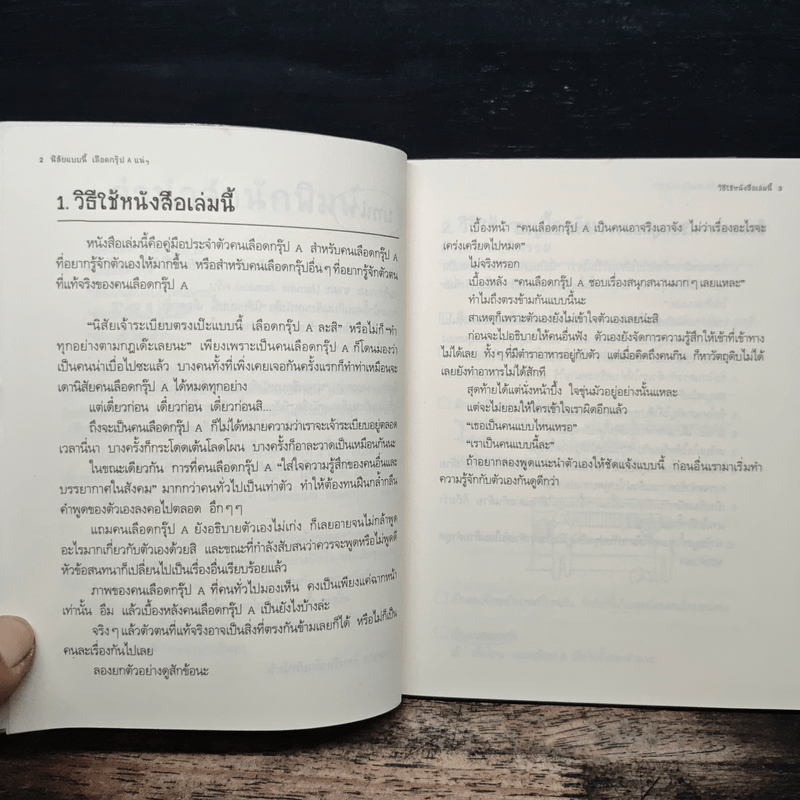 2 นิสัยแบบนี้ เลือดกรุ๊ป A แน่ๆ
1. วิธีใช้หนังสือเล่มนี้
หนังสือเล่มนี้คือคู่มือประจำตัวคนเลือดกรุ๊ป A สำหรับคนเลือดกรุ๊ป A
ที่อยากรู้จักตัวเองให้มากขึ้น หรือสำหรับคนเลือดกรุ๊ปอื่นๆ ที่อยากรู้จักตัวตน
ที่แท้จริงของคนเลือดกรุ๊ป A
“นิสัยเจ้าระเบียบตรงเป๊ะแบบนี้ เลือดกรุ๊ป A ละสิ” หรือไม่ก็ “ทำ
ทุกอย่างตามกฎเด๊ะเลยนะ” เพียงเพราะเป็นคนเลือดกรุ๊ป A ก็โดนมองว่า
เป็นคนน่าเบื่อไปซะแล้ว บางคนทั้งที่เพิ่งเคยเจอกันครั้งแรกก็ทำท่าเหมือนจะ
เดานิสัยคนเลือดกรุ๊ป A ได้หมดทุกอย่าง
แต่เดี๋ยวก่อน เดี๋ยวก่อน เดี๋ยวก่อนสิ...
ถึงจะเป็นคนเลือดกรุ๊ป A ก็ไม่ได้หมายความว่าเราจะเจ้าระเบียบอยู่ตลอด
เวลานี่นา บางครั้งก็กระโดดเต้นโลดโผน บางครั้งก็อาละวาดเป็นเหมือนกันนะ
ในขณะเดียวกัน การที่คนเลือดกรุ๊ป A “ใส่ใจความรู้สึกของคนอื่นและ
บรรยากาศในสังคม” มากกว่าคนทั่วไปเป็นเท่าตัว ทำให้ต้องทนฝืนกล้ำกลืน
คำพูดของตัวเองลงคอไปตลอด อึกๆๆ
แถมคนเลือดกรุ๊ป A ยังอธิบายตัวเองไม่เก่ง ก็เลยอายจนไม่กล้าพูด
อะไรมากเกี่ยวกับตัวเองด้วยสิ และขณะที่กำลังสับสนว่าควรจะพูดหรือไม่พูดดี
หัวข้อสนทนาก็เปลี่ยนไปเป็นเรื่องอื่นเรียบร้อยแล้ว
ภาพของคนเลือดกรุ๊ป A ที่คนทั่วไปมองเห็น คงเป็นเพียงแค่ฉากหน้า
เท่านั้น อืม แล้วเบื้องหลังคนเลือดกรุ๊ป A เป็นยังไงบ้างล่ะ
จริงๆ แล้วตัวตนที่แท้จริงอาจเป็นสิ่งที่ตรงกันข้ามเลยก็ได้ หรือไม่ก็เป็น
คนละเรื่องกันไปเลย
ลองยกตัวอย่างดูสักข้อนะ
วิธีใช้หนังสือเล่มนี้ 3
เบื้องหน้า “คนเลือดกรุ๊ป A เป็นคนเอาจริงเอาจัง ไม่ว่าเรื่องอะไรจะ
เคร่งเครียดไปหมด”
ไม่จริงหรอก
เบื้องหลัง “คนเลือดกรุ๊ป A ชอบเรื่องสนุกสนานมากๆ เลยแหละ”
ทำไมถึงตรงข้ามกันแบบนี้นะ
สาเหตุก็เพราะตัวเองยังไม่เข้าใจตัวเองเลยน่ะสิ
ก่อนจะไปอธิบายให้คนอื่นฟัง ตัวเองยังจัดการความรู้สึกให้เข้าที่เข้าทาง
ไม่ได้เลย ทั้งๆ ที่มีตำราอาหารอยู่กับตัว แต่เมื่อคิดถึงคนกิน ก็หาวัตถุดิบไม่ได้
เลยยังทำอาหารไม่ได้สักที
สุดท้ายก็ได้แต่นั่งหน้าบึ้ง ใจขุ่นมัวอยู่อย่างนั้นแหละ
แต่จะไม่ยอมให้ใครเข้าใจเราผิดอีกแล้ว
“เธอเป็นคนแบบไหนเหรอ”
“เราเป็นคนแบบนี้ละ”
ถ้าอยากลองพูดแนะนำตัวเองให้ชัดแจ้งแบบนี้ ก่อนอื่นเรามาเริ่มทำ
ความรู้จักกับตัวเองกันดูดีกว่า